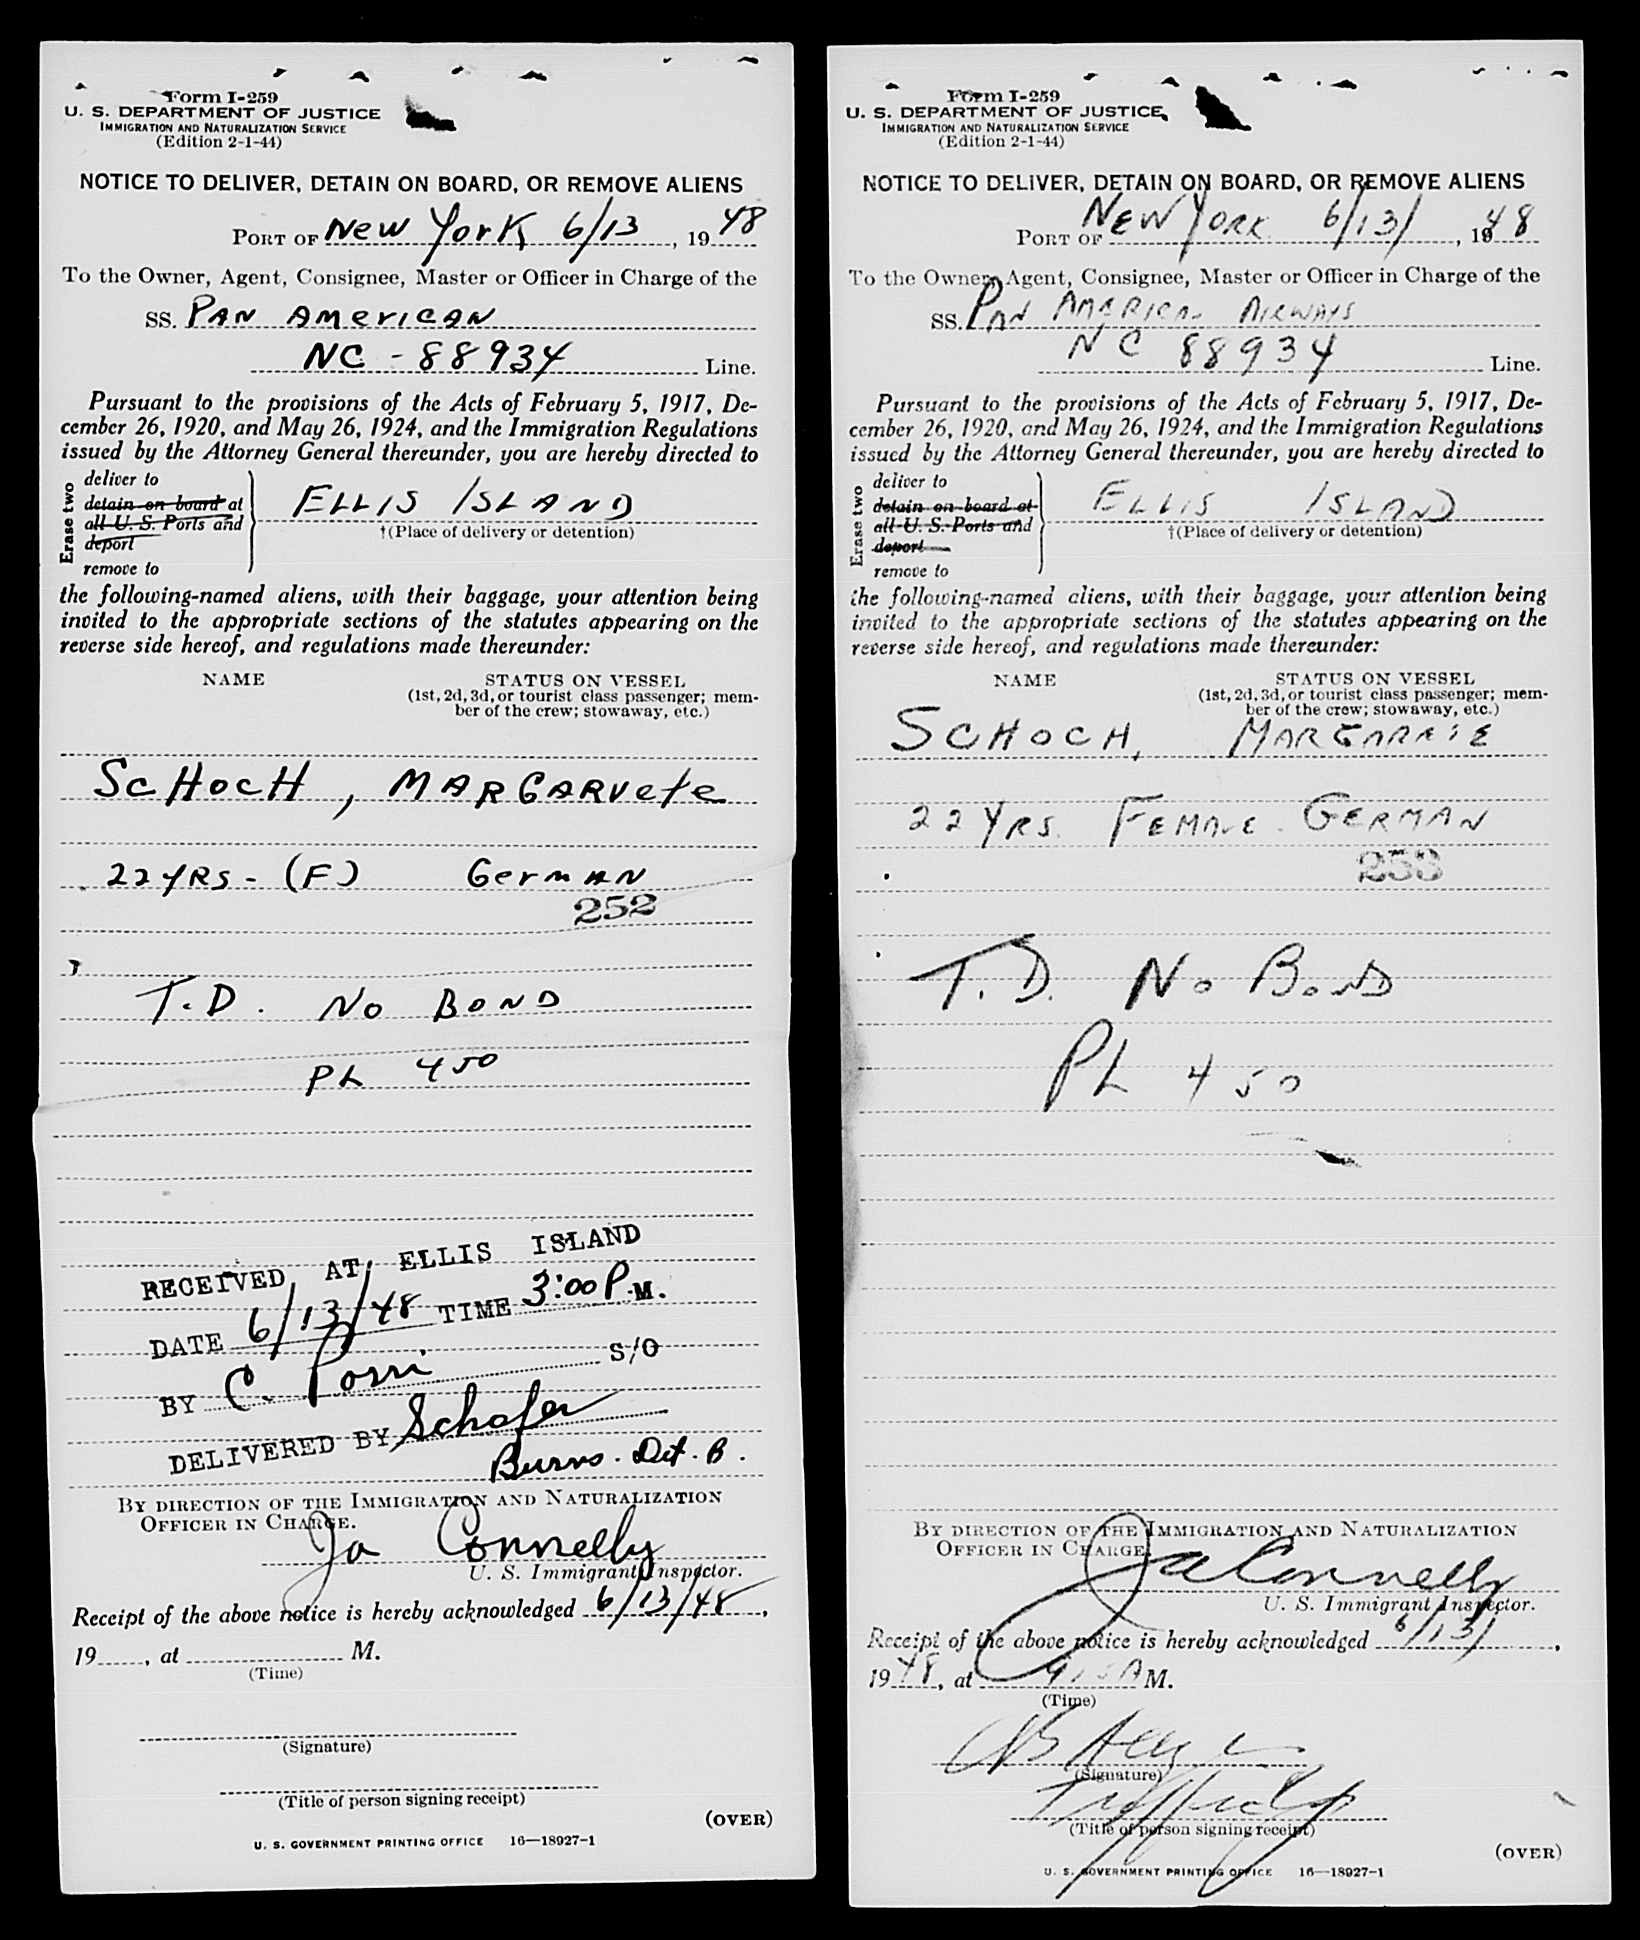 Form I-259
U. S. DEPARTMENT OF JUSTICE
IMMIGRATION AND NATURALIZATION SERVICE
(Edition 2-1-44)
NOTICE TO DELIVER, DETAIN ON BOARD, OR REMOVE ALIENS
PORT OF New York 6/13, 1948
To the Owner, Agent, Consignee, Master or Officer in Charge of the
SS. PAN AMERICAN
NC - 88934 Line.
Pursuant to the provisions of the Acts of February 5, 1917, De-
cember 26, 1920, and May 26, 1924, and the Immigration Regulations
issued by the Attorney General thereunder, you are hereby directed to
Erase two
deliver to
detain on board at
all U. S. Ports and
deport
remove to
ELLIS ISLAND
†(Place of delivery or detention)
the following-named aliens, with their baggage, your attention being
invited to the appropriate sections of the statutes appearing on the
reverse side hereof, and regulations made thereunder:
NAME STATUS ON VESSEL
(1st, 2d, 3d, or tourist class passenger; mem-
ber of the crew; stowaway, etc.)
SCHOCH, MARGARVete
22 YRS - (F) German
252
T.D. No BOND
PL 450
RECEIVED AT ELLIS ISLAND
DATE 6/13/48 TIME 3:00 P.M.
BY C. S/O
DELIVERED BY Schafer
Burns. Det. B.
BY DIRECTION OF THE IMMIGRATION AND NATURALIZATION
OFFICER IN CHARGE.
Ja Connelly
U. S. Immigrant Inspector.
Receipt of the above notice is hereby acknowledged 6/13/48,
19 , at M.
(Time)
(Signature)
(Title of person signing receipt)
(OVER)
U. S. GOVERNMENT PRINTING OFFICE 16—18927-1
Form I-259
U. S. DEPARTMENT OF JUSTICE
IMMIGRATION AND NATURALIZATION SERVICE
(Edition 2-1-44)
NOTICE TO DELIVER, DETAIN ON BOARD, OR REMOVE ALIENS
PORT OF NEW YORK 6/13/, 1948
To the Owner, Agent, Consignee, Master or Officer in Charge of the
SS. PAN AMERICAN AIRWAYS
NC 88934 Line.
Pursuant to the provisions of the Acts of February 5, 1917, De-
cember 26, 1920, and May 26, 1924, and the Immigration Regulations
issued by the Attorney General thereunder, you are hereby directed to
Erase two
deliver to
detain on board at
all U. S. Ports and
deport
remove to
ELLIS ISLAND
†(Place of delivery or detention)
the following-named aliens, with their baggage, your attention being
invited to the appropriate sections of the statutes appearing on the
reverse side hereof, and regulations made thereunder:
NAME STATUS ON VESSEL
(1st, 2d, 3d, or tourist class passenger; mem-
ber of the crew; stowaway, etc.)
SCHOCH,
22 YRS. FEMALE. GERMAN
253
T.D. No BOND
PL 450
BY DIRECTION OF THE IMMIGRATION AND NATURALIZATION
OFFICER IN CHARGE.
Ja Connelly
U. S. Immigrant Inspector.
Receipt of the above notice is hereby acknowledged 6/13/,
1948, at M.
(Time)
(Signature)
(Title of person signing receipt)
(OVER)
U. S. GOVERNMENT PRINTING OFFICE 16—18927-1